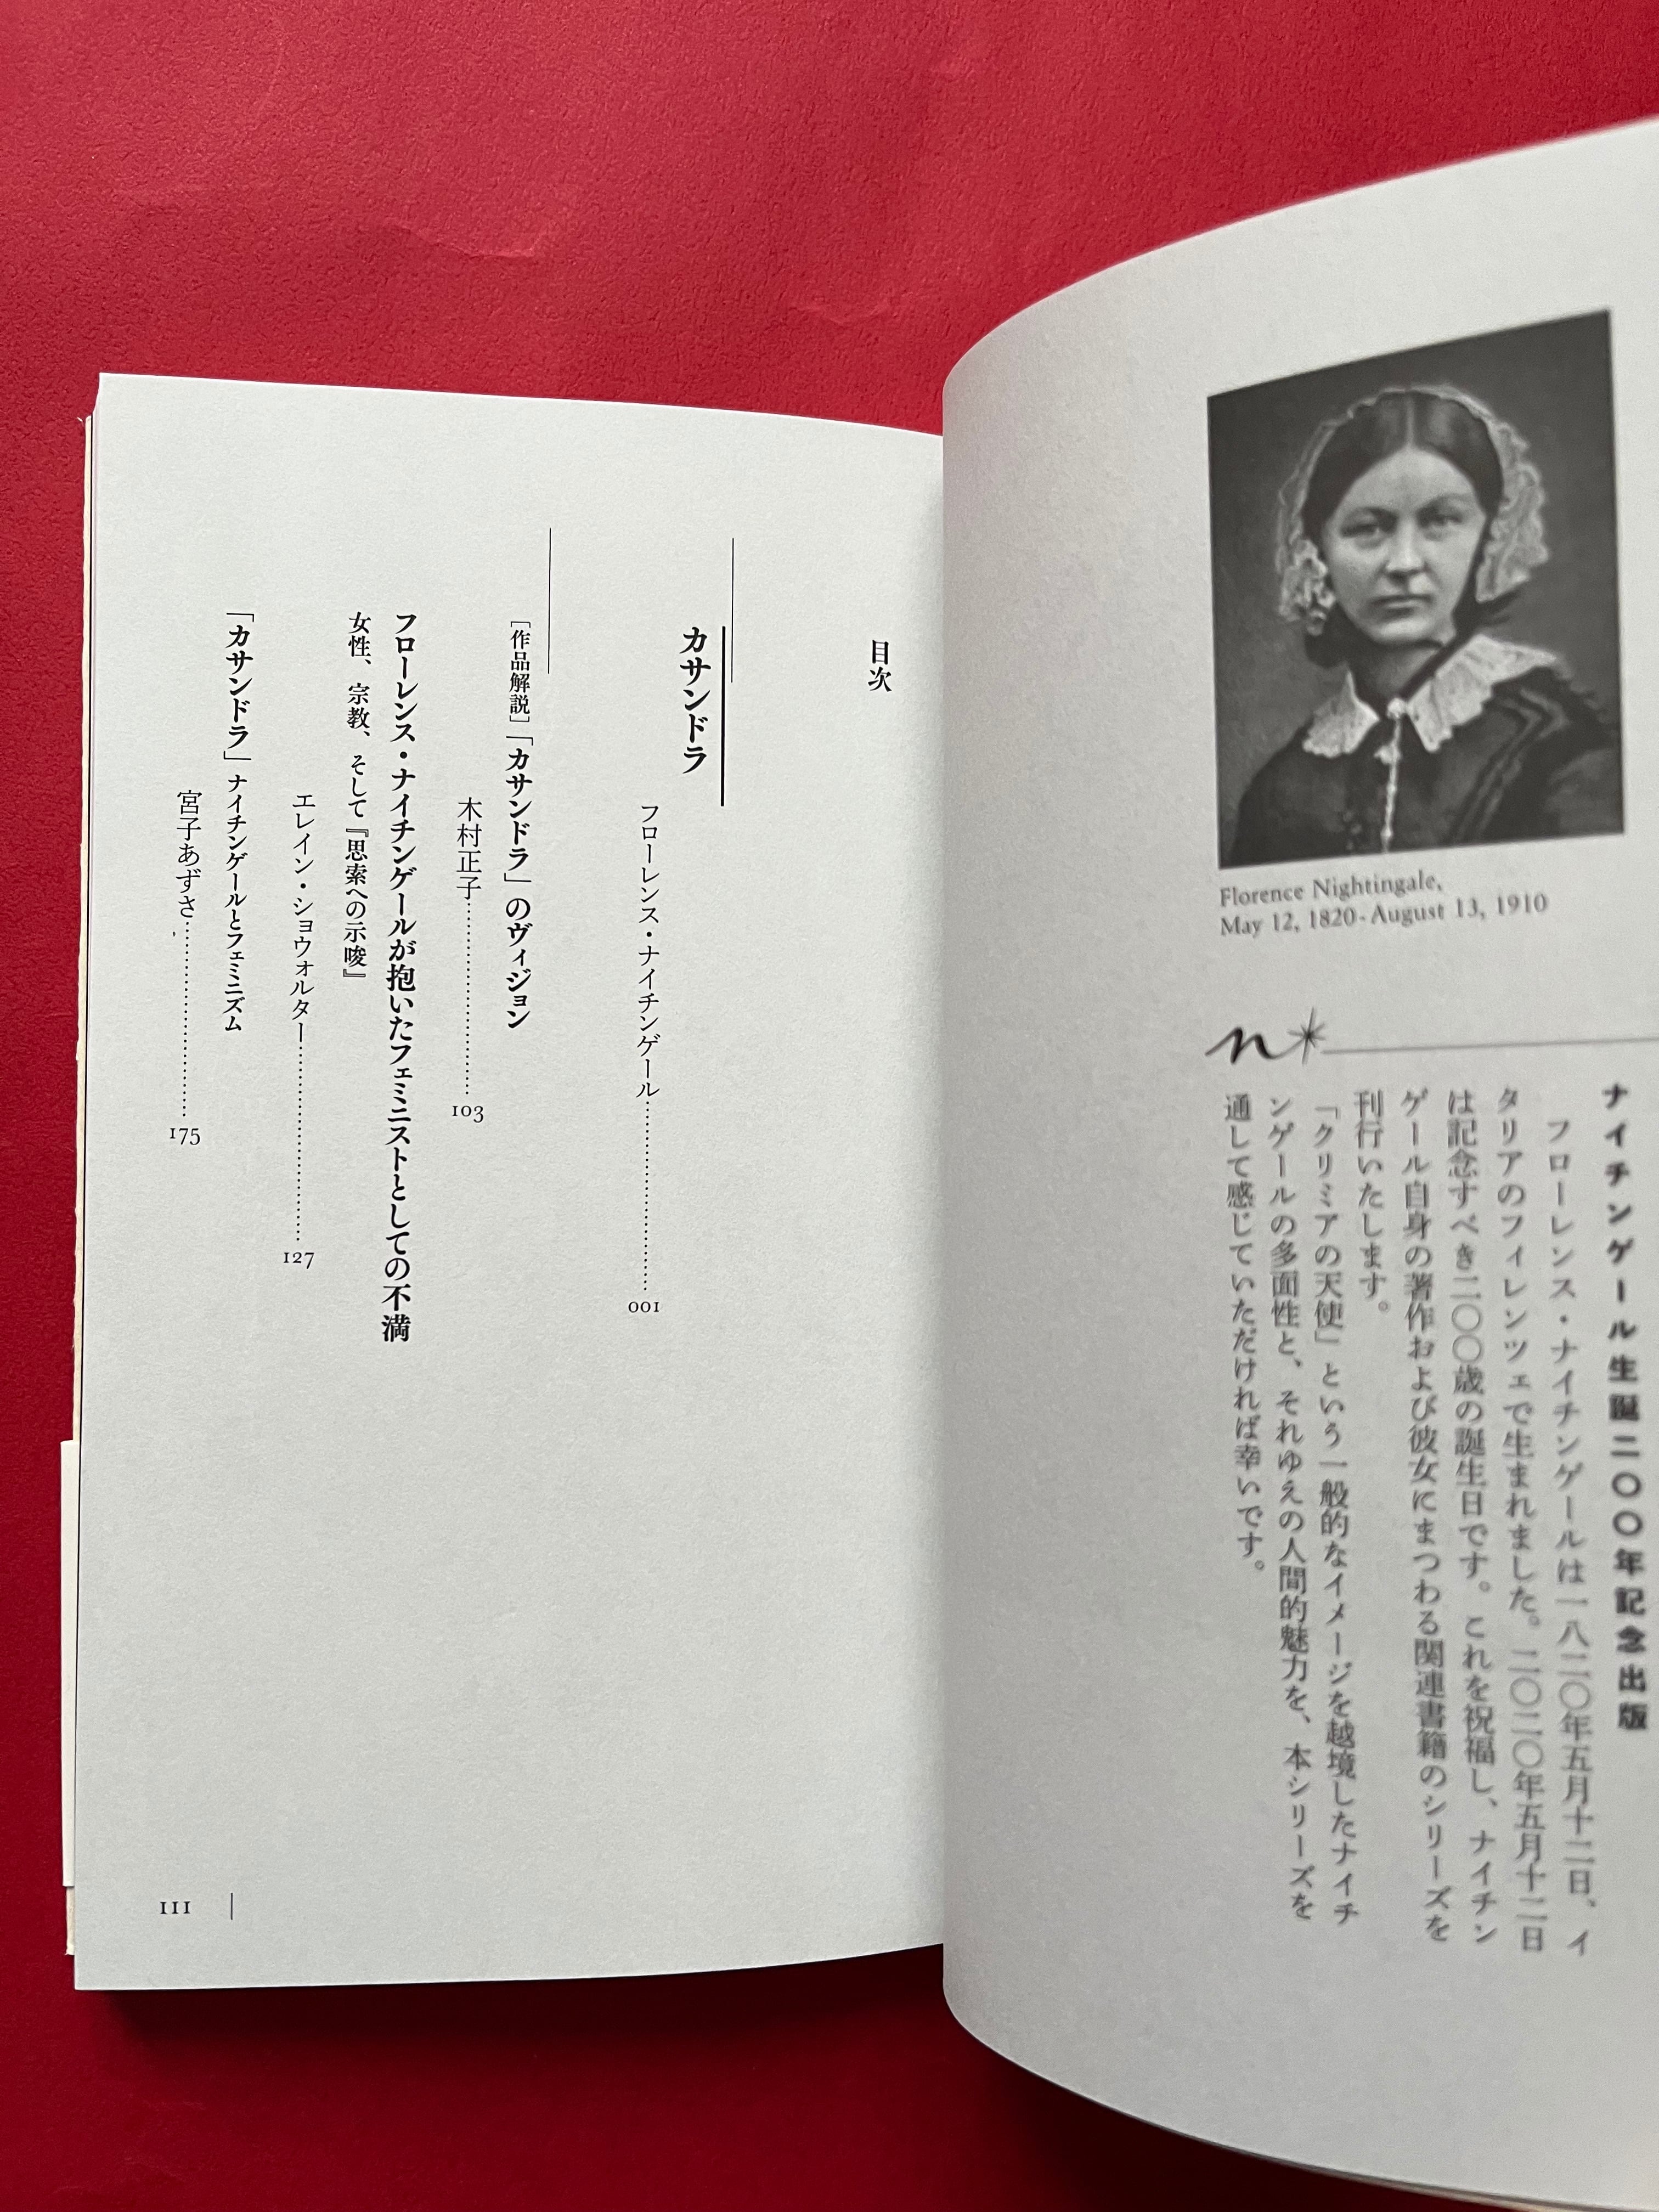 Florence Nightingale,
May 12, 1820-August 13, 1910
n*
ナイチンゲール生誕二〇〇年記念出版
フローレンス・ナイチンゲールは一八二〇年五月十二日、イ
タリアのフィレンツェで生まれました。二〇二〇年五月十二日
は記念すべき二〇〇歳の誕生日です。これを祝福し、ナイチン
ゲール自身の著作および彼女にまつわる関連書籍のシリーズを
刊行いたします。
「クリミアの天使」という一般的なイメージを越境したナイチ
ンゲールの多面性と、それゆえの人間的魅力を、本シリーズを
通して感じていただければ幸いです。
目次
カサンドラ
フローレンス・ナイチンゲール……………………001
[作品解説]「カサンドラ」のヴィジョン
木村正子……………………103
フローレンス・ナイチンゲールが抱いたフェミニストとしての不満
女性、宗教、そして『思索への示唆』
エレイン・ショウォルター……………………127
「カサンドラ」ナイチンゲールとフェミニズム
宮子あずさ……………………175
III